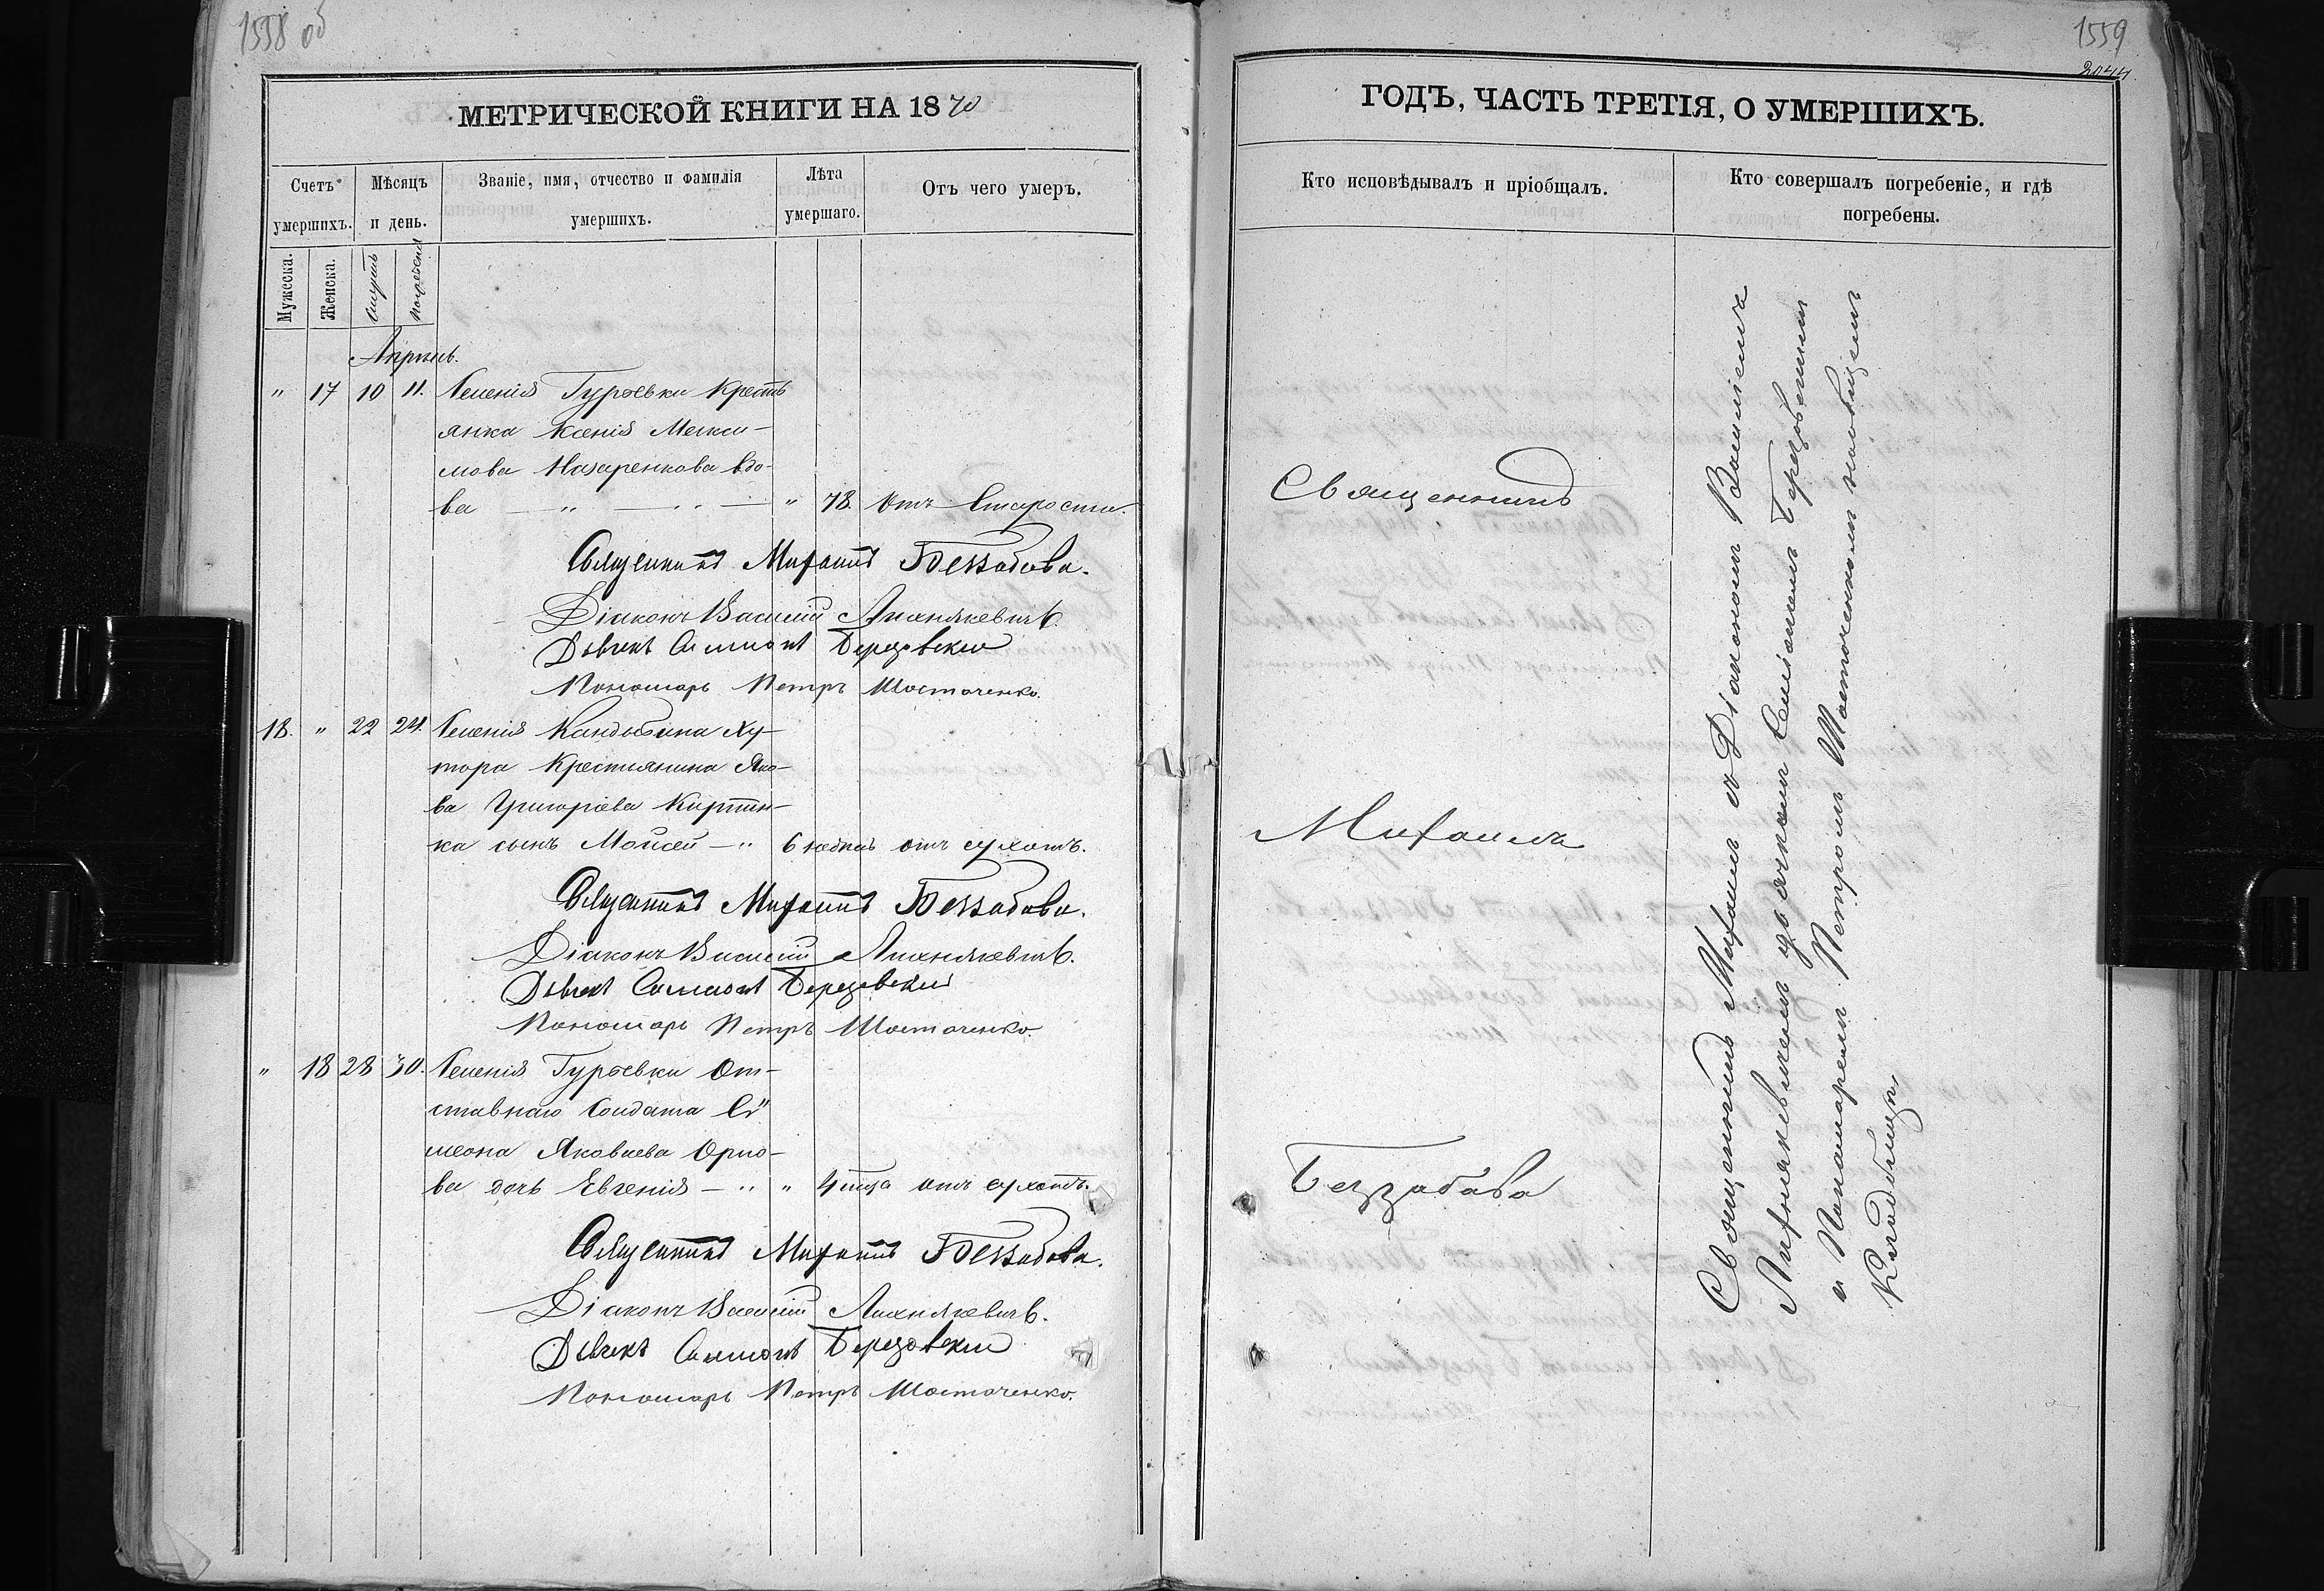 1558 об
МЕТРИЧЕСКОЙ КНИГИ НА 1870
Счетъ умершихъ.
Мѣсяцъ и день.
Званіе, имя, отчество и фамилія умершихъ.
Лѣта умершаго.
Отъ чего умеръ.
Мужеска.
Женска.
Смерть
Погребенія
Апрѣль.
" 17 10 11. Селенія Гурьевки Кресть
янка Ксенія Макси-
мова Назаренкова вдо-
ва — " — " — " 78. Отъ Старости.
Священникъ Михаилъ Беззабава.
Діаконъ Василій Лихнякевичъ.
Дьячекъ Симеонъ Березовскій
Пономарь Петръ Шостаченко.
18. " 22 24. Селенія Кандыбина Ху-
тора Крестьянина Яко-
ва Григоріева Кирпич-
ка сынъ Мойсей — " 6 недѣль отъ сухотъ.
Священникъ Михаилъ Беззабава.
Діаконъ Василій Лихнякевичъ.
Дьячекъ Симеонъ Березовскій
Пономарь Петръ Шостаченко.
" 18 28 30. Селенія Гурьевки От-
ставнаго Солдата Си"
меона Яковлева Орло-
ва дочь Евгенія — " " 4 года отъ сухотъ.
Священникъ Михаилъ Беззабава.
Діаконъ Василій Лихнякевичъ.
Дьячекъ Симеонъ Березовскій
Пономарь Петръ Шостаченко.
1559
2044.
ГОДЪ, ЧАСТЬ ТРЕТІЯ, О УМЕРШИХЪ.
Кто исповѣдывалъ и пріобщалъ.
Кто совершалъ погребеніе, и гдѣ
погребены.
Священникъ
Михаилъ
Беззабава
Священникъ Михаилъ съ Діакономъ Василіемъ
Лихнякевичемъ дьячкомъ Симіономъ Березовскимъ
и Пономаремъ Петромъ Шостаченкомъ на общемъ
Кладбищѣ.